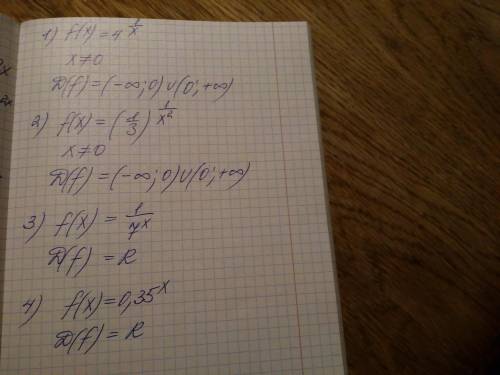 1) f(x) = 4^(1/x)
x≠0
D(f) = (-∞; 0) ∪ (0; +∞)
2) f(x) = (1/3)^(1/x²)
x≠0
D(f) = (-∞; 0) ∪ (0; +∞)
3) f(x) = 1/7^x
D(f) = R
4) f(x) = 0,35^x
D(f) = R